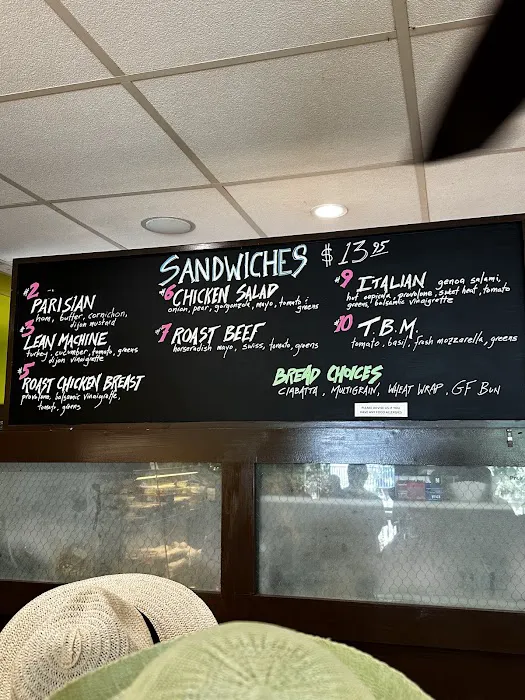 SANDWICHES $13.95
#2 PARISIAN
ham, butter, cornichon,
dijon mustard
#3 LEAN MACHINE
turkey, cucumber, tomato, greens
dijon vinaigrette
#5 ROAST CHICKEN BREAST
provolone, balsamic vinaigrette,
tomato, greens
#6 CHICKEN SALAD
onion, pear, gorgonzola, mayo, tomato &
greens
#7 ROAST BEEF
horseradish mayo, swiss, tomato, greens
#9 ITALIAN genoa salami,
hot coppicola, provolone, sweet heat, tomato
greens, balsamic vinaigrette
#10 T.B.M.
tomato, basil, fresh mozzarella, greens
BREAD CHOICES
CIABATTA, MULTIGRAIN, WHEAT WRAP, GF BUN
PLEASE ADVISE US IF YOU
HAVE ANY FOOD ALLERGIES